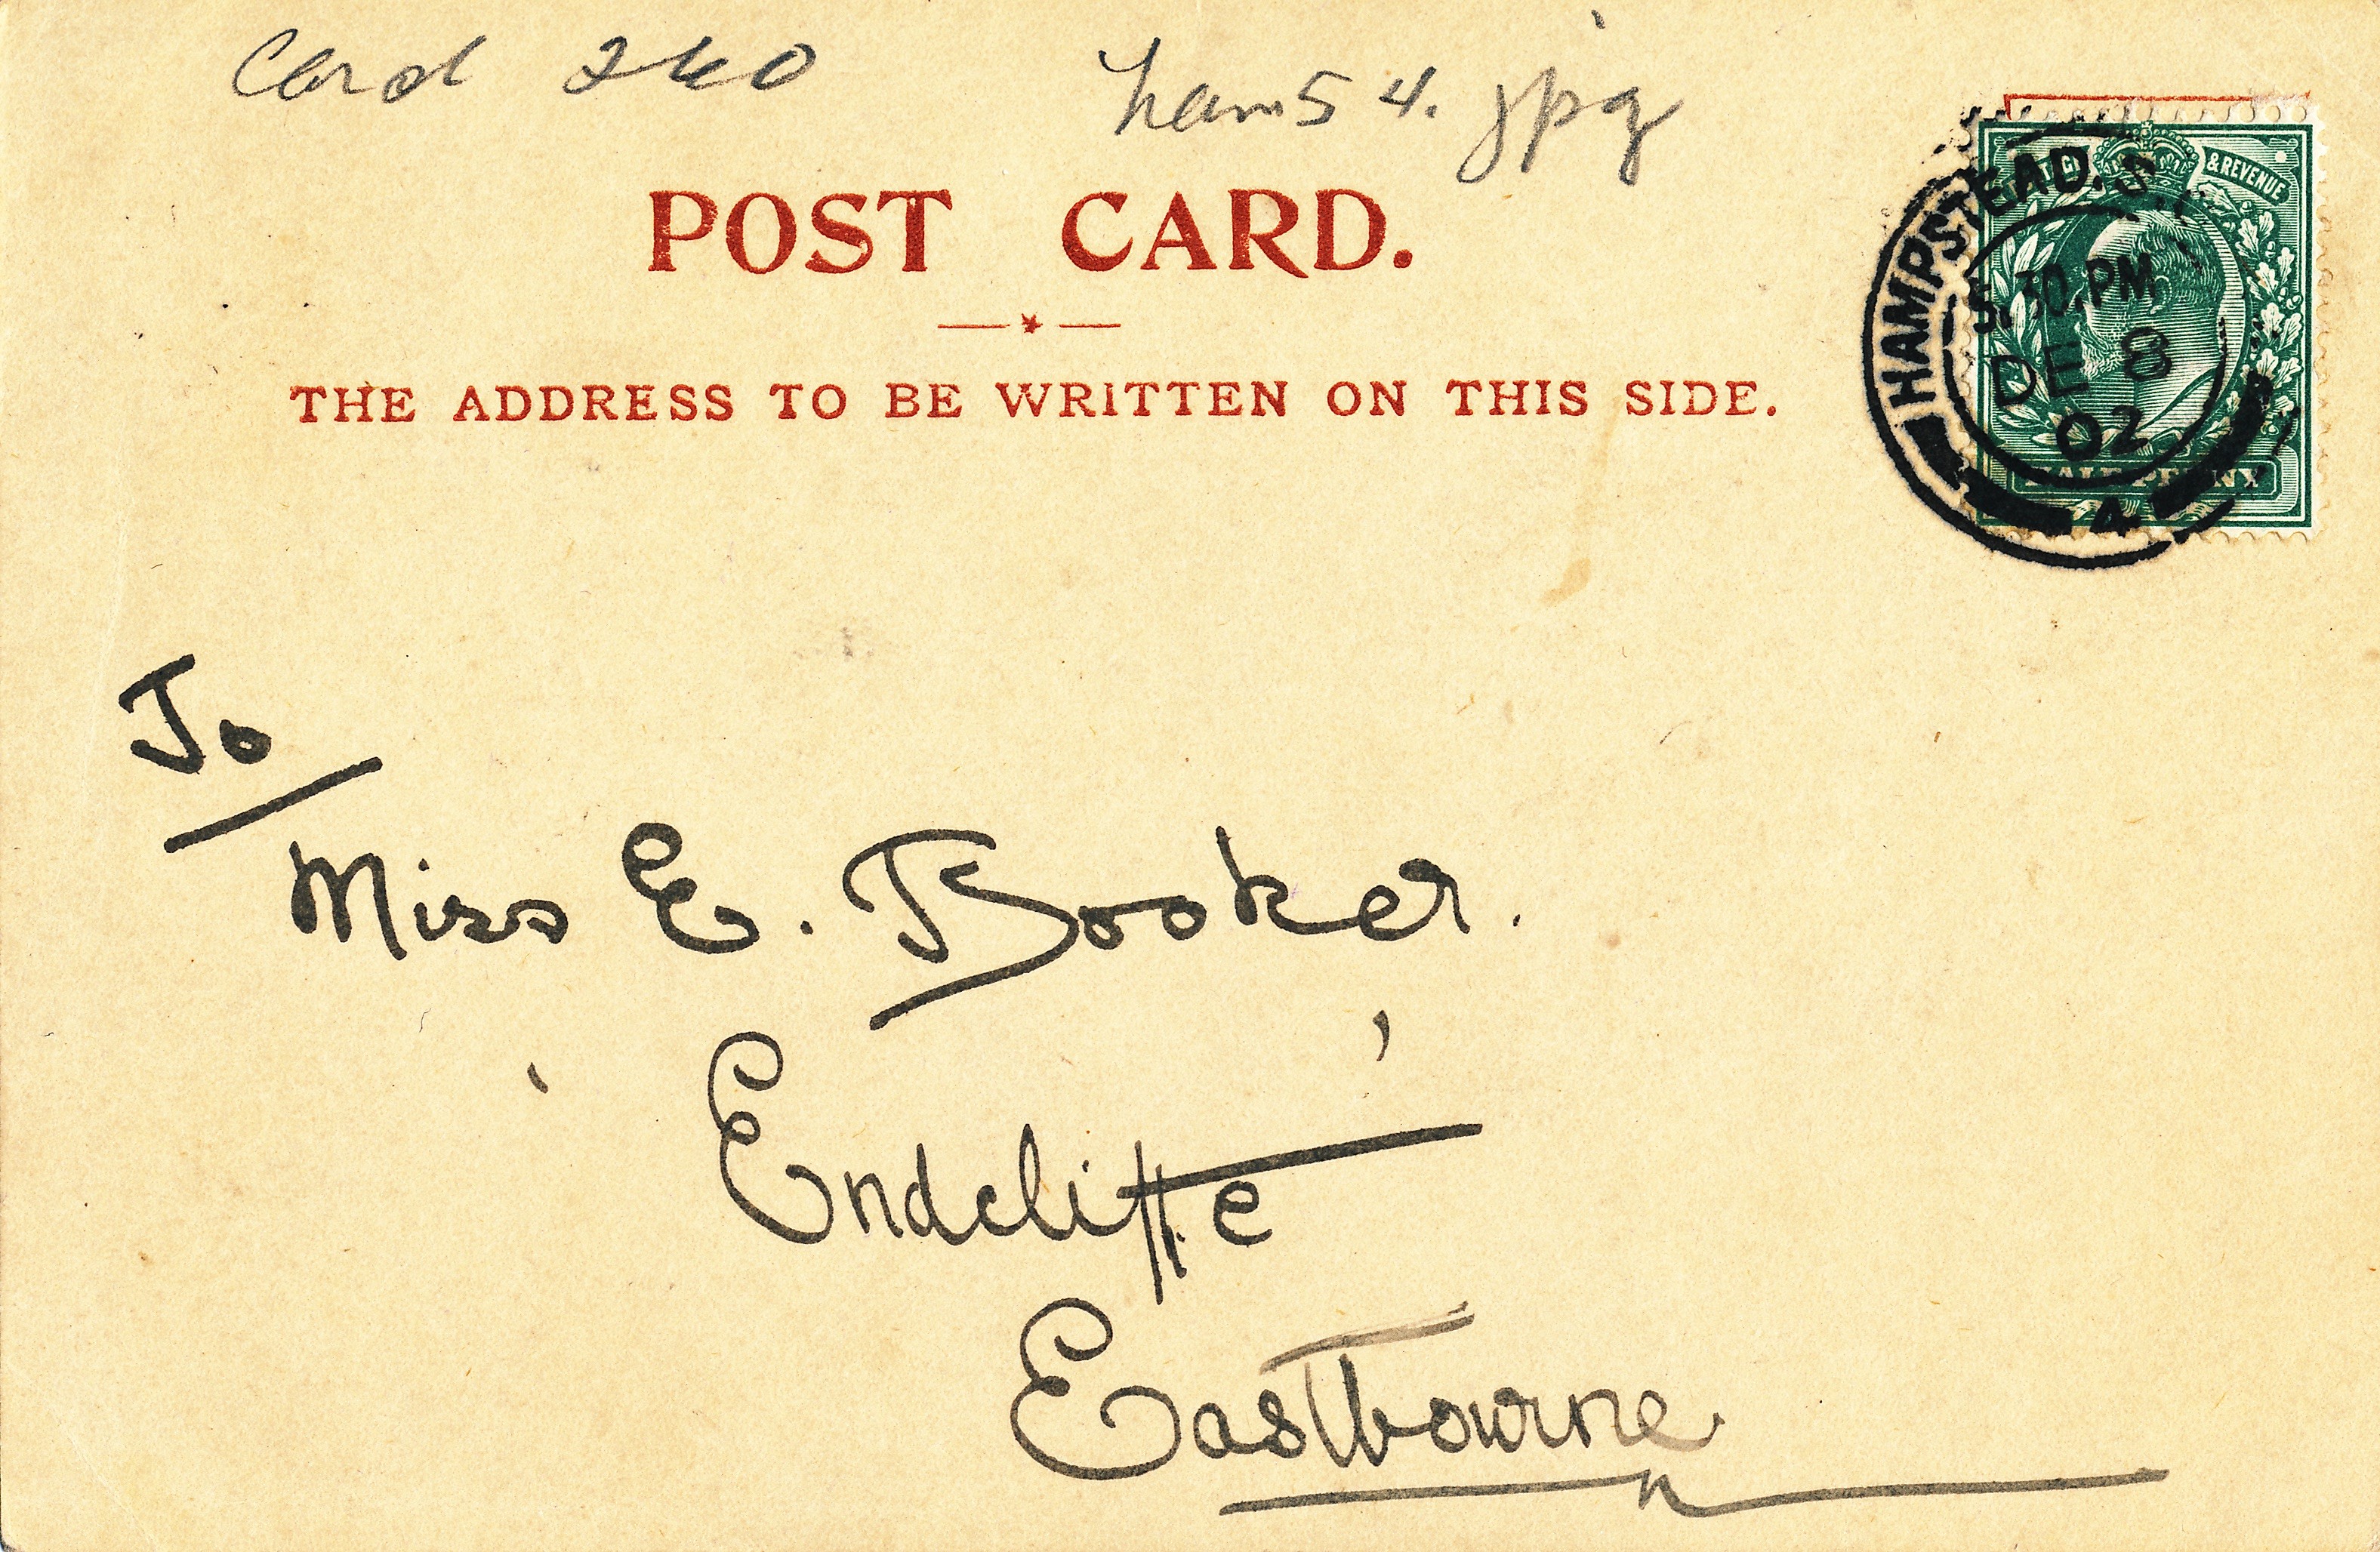 Card 260 ham54.jpg
POST CARD.
THE ADDRESS TO BE WRITTEN ON THIS SIDE.
& REVENUE
HAMPSTEAD. S
5.30.PM
DE 8
02
4
HALFPENNY
To
Miss E. Booker.
'Endcliffe'
Eastbourne